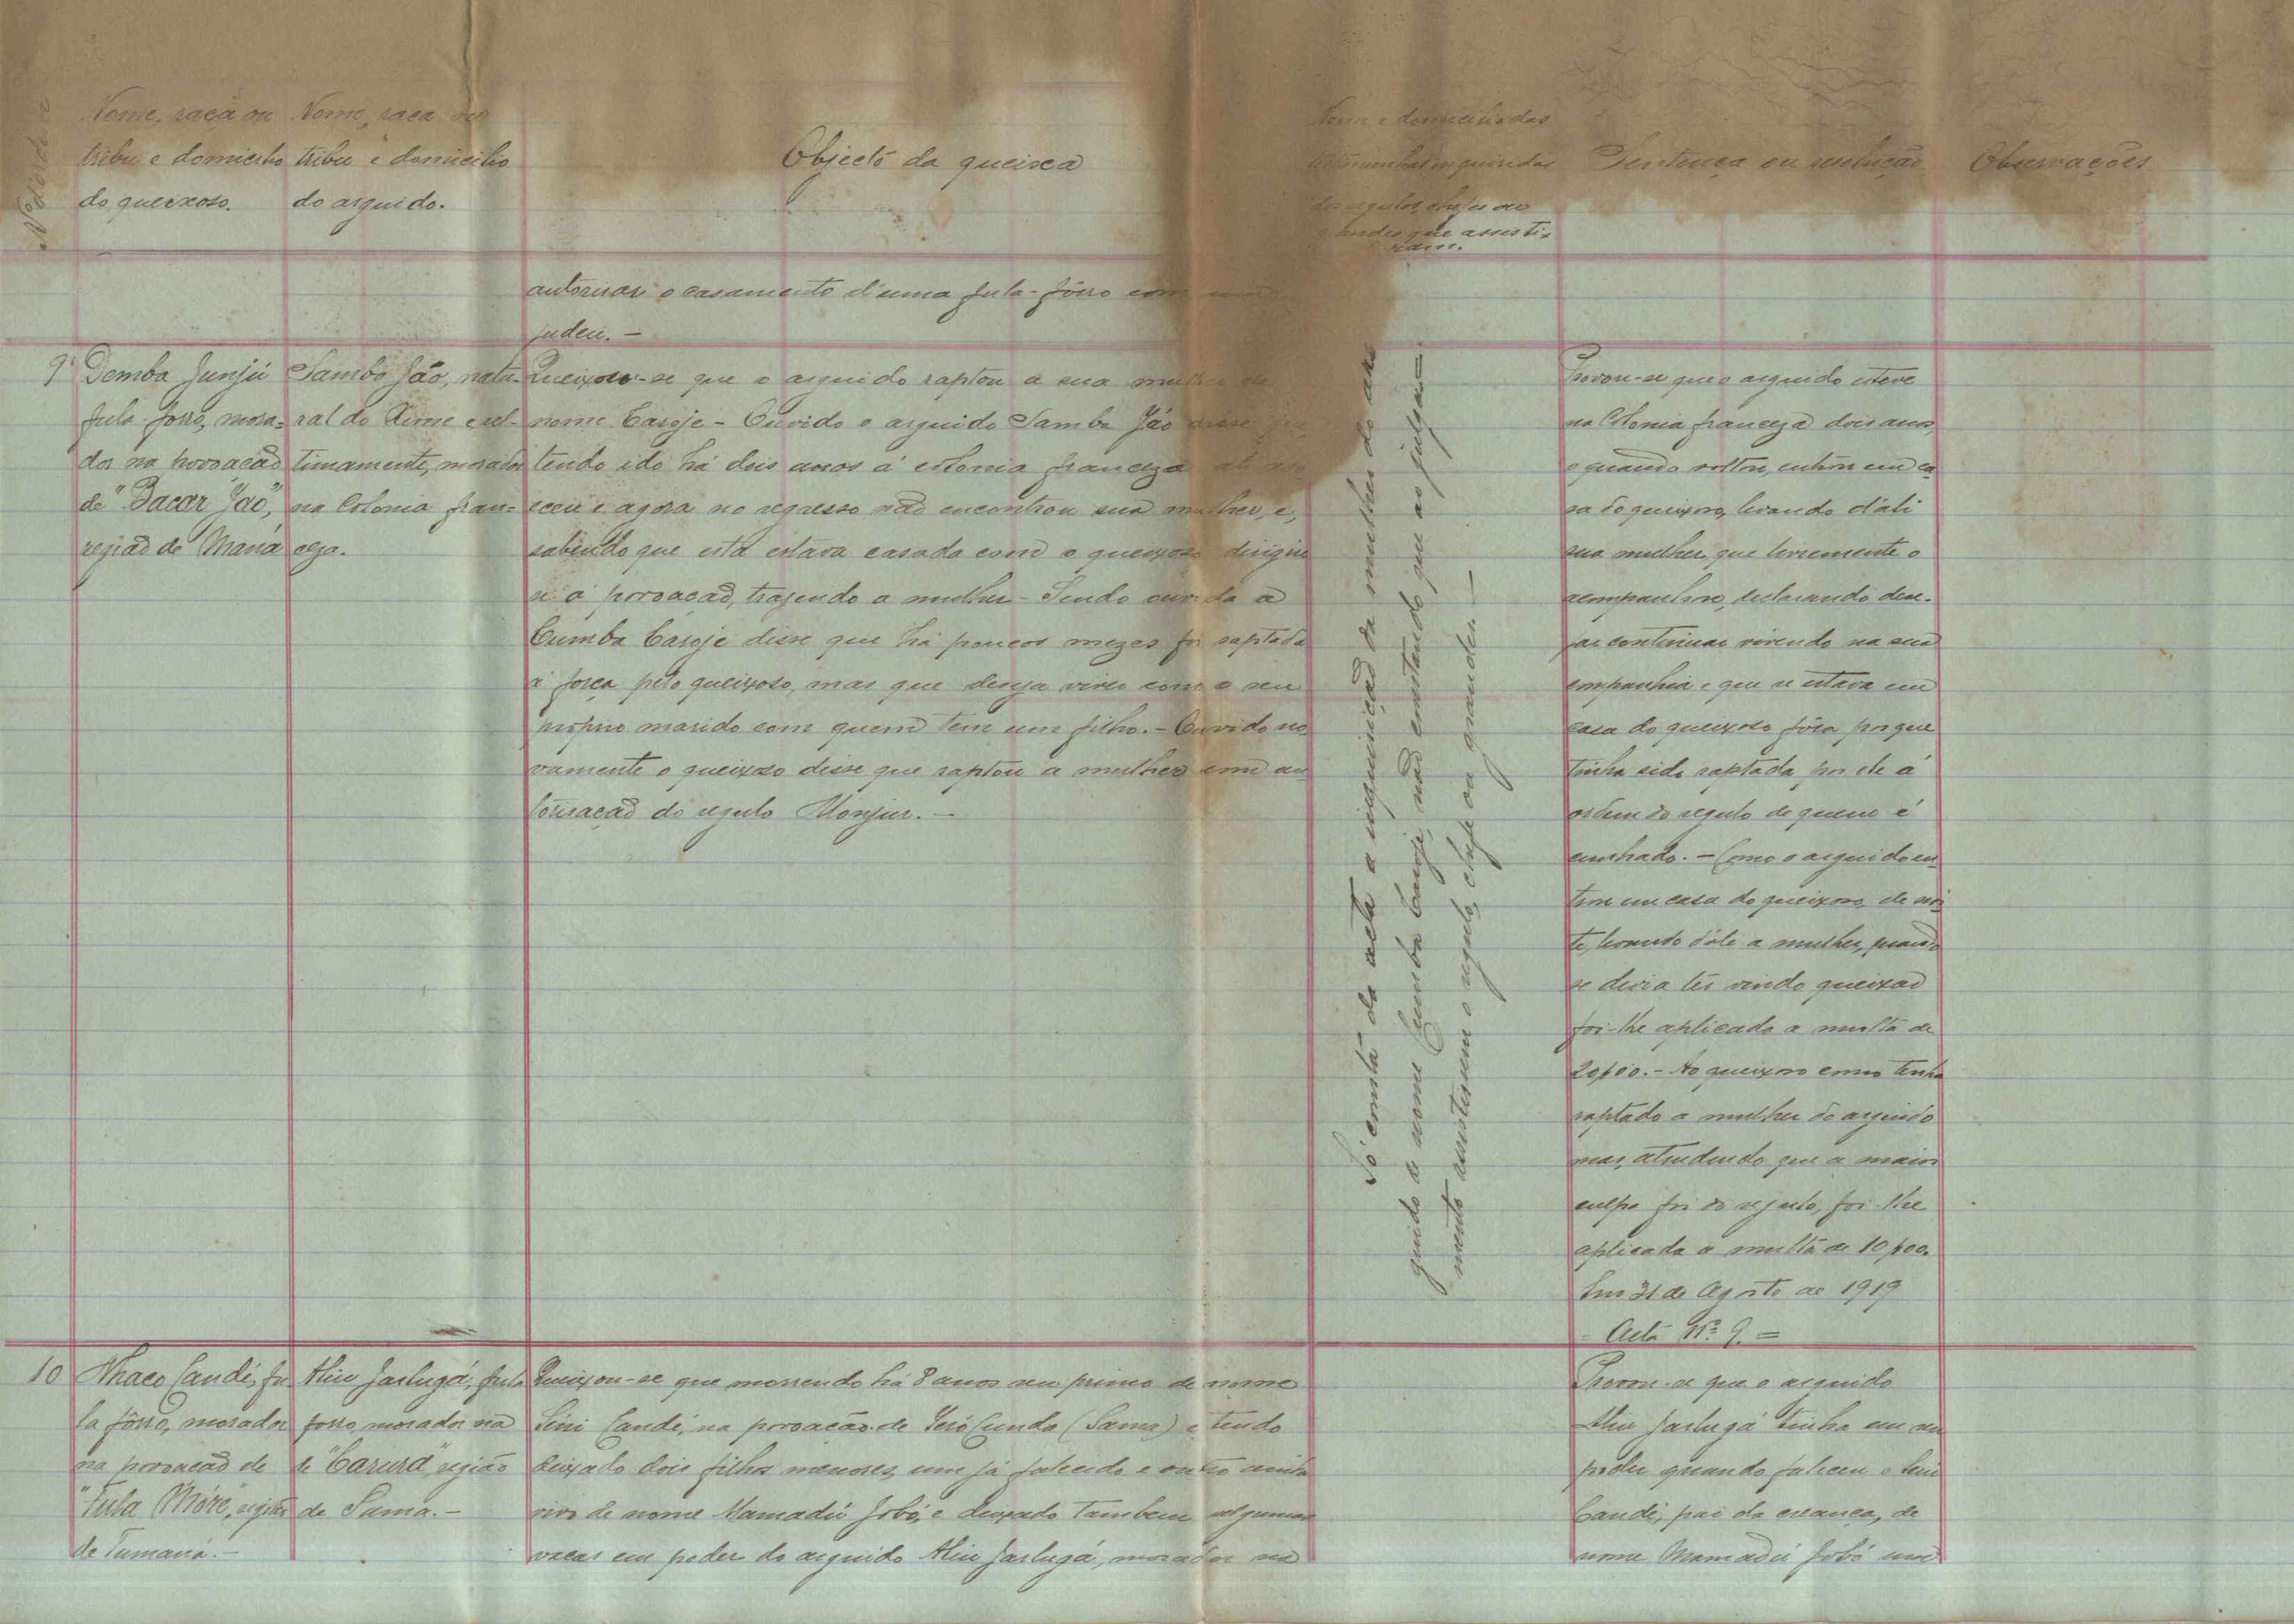 Nº d'ordem
Nome, raça ou
tribu e domicilio
do queixoso.
Nome, raça ou
tribu e domicilio
do arguido.
Objectó da queixa
Nome e domicilio das
testemunhas inquiridas
dos regulos, chefes ou
grandes que assisti-
ram.
Sentença ou resolução
Observações
autorisar o casamento d'uma fula-fôrro com um
judeu. —
9
Demba Junjú
fula-forro, mora=
dor na povoação
de "Bacar Jáo",
região de Maná
Samba Jáo, natu-
ral do
timamente, morador
na Colonia fran=
ceza.
Queixou-se que o arguido raptou a sua mulher de
nome Caroje - Ouvido o arguido Samba Jáo disse que
tendo ido há dois anos á colonia franceza ali
eceu e agora no regresso não encontrou sua mulher, e,
sabendo que esta estava casada com o queixoso dirigiu
se á povoação, trazendo a mulher - Sendo ouvida a
Cumba Caroje disse que há poucos mezes foi raptada
á força pelo queixoso, mas que deseja viver com o seu
próprio marido com quem tem um filho. - Ouvido no
vamente o queixoso disse que raptou a mulher com au
torisação do regulo Monjur. —
Só consta da acta a inquirição da mulher do ar=
guido de nome Cumba Caroje, não constando que ao julga=
mento assistissem o regulo, chefe ou grandes. —
Provou-se que o arguido esteve
na Colonia franceza dois anos,
e quando voltou, entrou em ca
sa do queixoso, levando d'áli
sua mulher, que livremente o
acompanhou, declarando dese-
jar continuar vivendo na sua
companhia e que se estava em
casa do queixoso fôra porque
tinha sido raptada por ele á
ordem do regulo de quem é
cunhado. - Como o arguido en
trou em casa do queixoso, de noi
te, levando d'ali a mulher, quando
se devia ter vindo queixar
foi-lhe aplicada a multa de
20$00. - Ao queixoso como tenha
raptado a mulher do arguido
mas, atendendo que a maior
culpa foi do regulo, foi-lhe
aplicada a multa de 10$00.
Em 31 de Agosto de 1919
= Acta Nº 9. =
10
Nhaco Candé, fu
la fôrro, morador
na povoação de
"Fula Móre", região
de Tumaná. -
Aliu Jarlugá, fula
forro, morador na
de "Carura", região
de Sama. -
Queixou-se que morrendo há 8 anos seu primo de nome
Séni Candé, na povoação de Yeró Cunda (Sama) e tendo
deixado dois filhos menores, um já falecido e outro ainda
vivo de nome Mamadú Jobó, e deixado tambem algumas
vacas em poder do arguido Aliu Jarlugá, morador na
Provou-se que o arguido
Aliu Jarlugá tinha em seu
poder quando faleceu o Seni
Candé, pai da creança, de
nome Mamadú Jobó uma